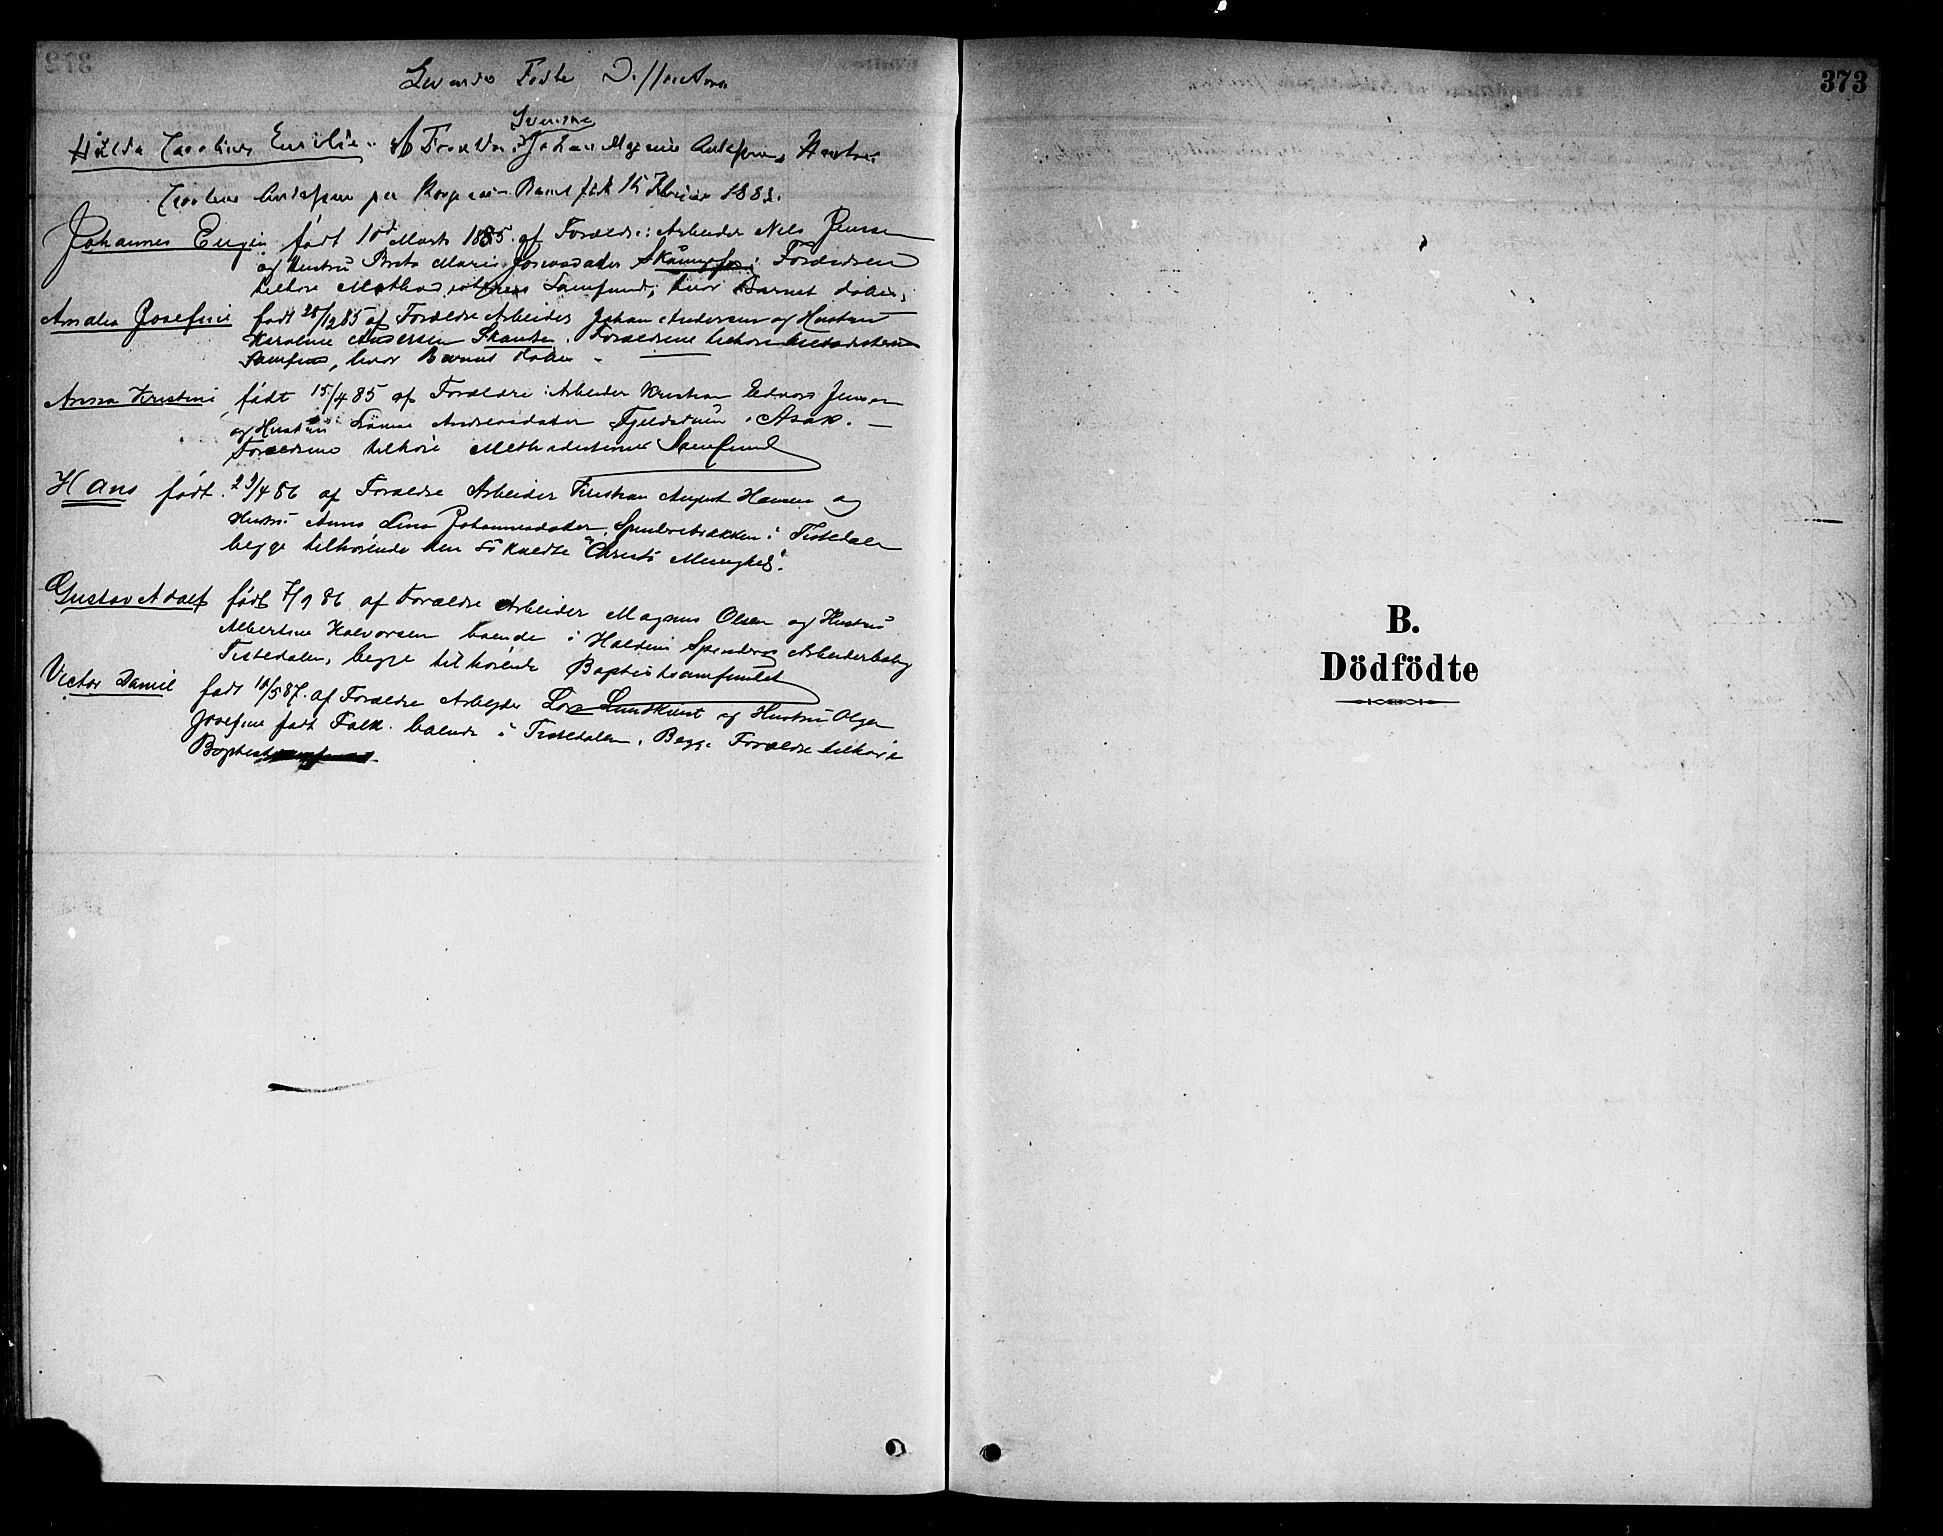 Levende Fødte Dissentere
Svenske
Hilda Caroline Emilie. Af Forældre Johan Magnus Andersson, Hustru
født 15 Februar 188
Johannes Eugen født 10de Marts 1885 af Forældre: Arbeider Nels Jensen
og Hustru Brita Maria Forældrene
tilhøre Methodisternes Samfund, hvor Barnet døbes,
Amalia Josefine født 28/12 85 af Forældre Arbeider Johan Andersen og Hustru
Karoline Andersen Skansen. Forældrene tilhøre Metodisternes
Samfund, hvor Barnet døbes
Anna Kristine født 15/4 85 af Forældre: Arbeider Kristian Edvard Jensen
og Hustru Andreasdatter i Asak.
Forældrene tilhøre Methodisternes Samfund
Hans født 29/4 86 af Forældre Arbeider Kristian August Hansen og
Hustru Anna Lina Johannesdatter i Tistedalen
begge tilhørende den såkaldte "Christi Menighed".
Gustav Adolf født 7/9 86 af Forældre Arbeider Magnus Olsen og Hustru
Albertine Halvorsen boende i Haldens Spinderis Arbeiderbolig
Tistedalen, begge tilhørende Baptistsamfundet
Victor Daniel født 10/5 87. af Forældre Arbeyder Lars Lundkvist og Hustru Olga
Josefine født Falk. boende i Tistedalen. Begge Forældre tilhøre
Baptistsamfundet
373
B.
Dödfödte